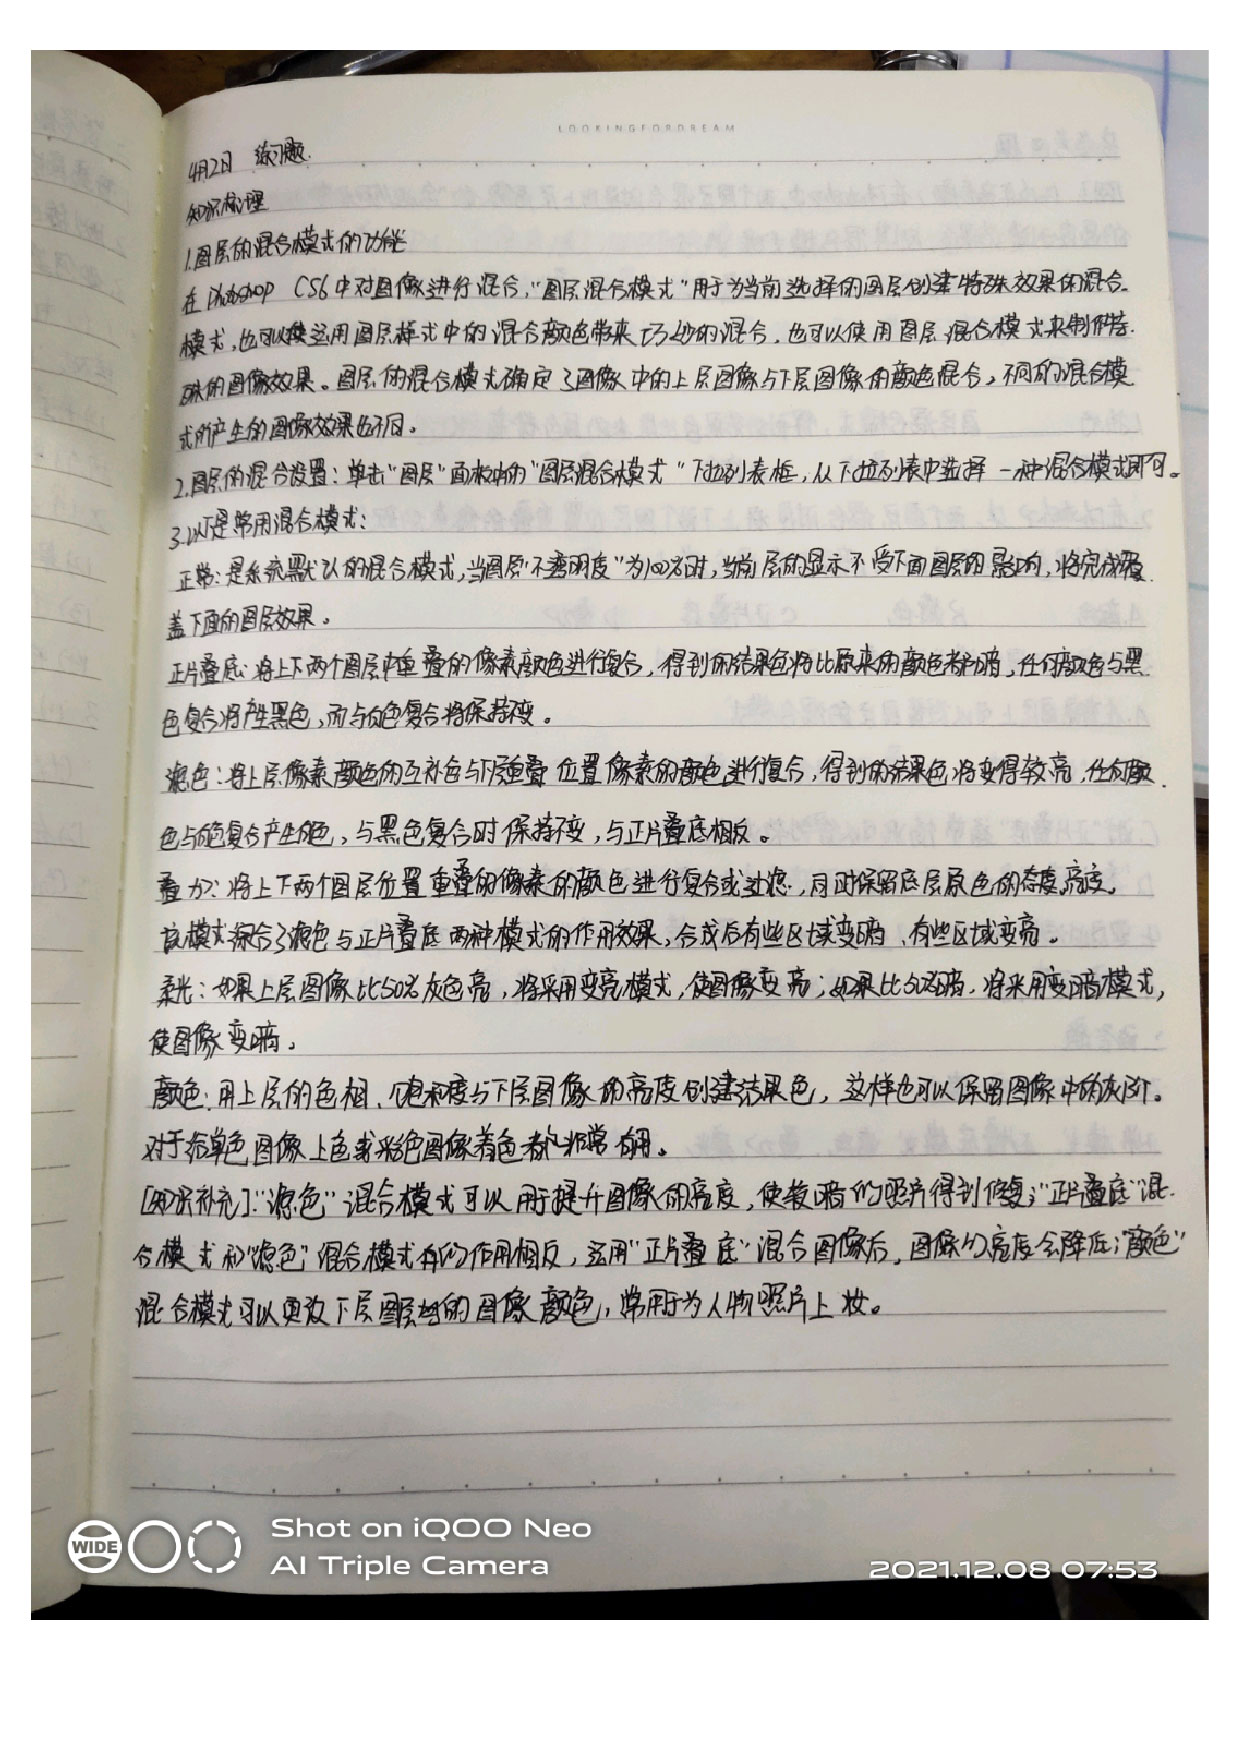 LOOKINGFORDREAM
4月2日 练习题.
知识梳理
1.图层的混合模式的功能
在Photoshop CS6中对图像进行混合,“图层混合模式”用于为当前选择的图层创建特殊效果的混合.
模式,也可以运用图层样式中的混合颜色带来巧妙的混合,也可以使用图层混合模式来制作特.
殊的图像效果。图层的混合模式确定了图像中的上层图像与下层图像的颜色混合,不同的混合模
式所产生的图像效果也不同。
2.图层的混合设置:单击“图层”面板中的“图层混合模式”下拉列表框,从下拉列表中选择一种混合模式即可。
3.以下是常用混合模式:
正常:是系统默认的混合模式,当图层“不透明度”为100%时,当前层的显示不受下面图层的影响,将完成覆
盖下面的图层效果。
正片叠底:将上下两个图层中重叠的像素颜色进行复合,得到的结果色将比原来的颜色都暗,任何颜色与黑
色复合将产生黑色,而与白色复合将保持不变。
滤色:将上层像素颜色的互补色与下层重叠位置像素的颜色进行复合,得到的结果色将变得较亮,任何颜
色与白色复合产生白色,与黑色复合时保持不变,与正片叠底相反。
叠加:将上下两个图层位置重叠的像素的颜色进行复合或过滤,同时保留底层原色的态度亮度。
该模式综合了滤色与正片叠底两种模式的作用效果,合成后有些区域变暗、有些区域变亮。
柔光:如果上层图像比50%灰色亮,将采用变亮模式,使图像变亮;如果比50%暗,将采用变暗模式,
使图像变暗。
颜色:用上层的色相、饱和度与下层图像的亮度创建结果色,这样也可以保留图像中的灰阶。
对于给单色图像上色或彩色图像着色都非常有用。
[知识补充]:“滤色”混合模式可以用于提升图像的亮度,使较暗的照片得到修复;“正片叠底”混.
合模式和“滤色”混合模式的作用相反,运用“正片叠底”混合图像后,图像的亮度会降低;“颜色”
混合模式可以更改下层图层的图像颜色,常用于为人物照片上妆。
WIDE
Shot on iQOO Neo
AI Triple Camera
2021.12.08 07:53